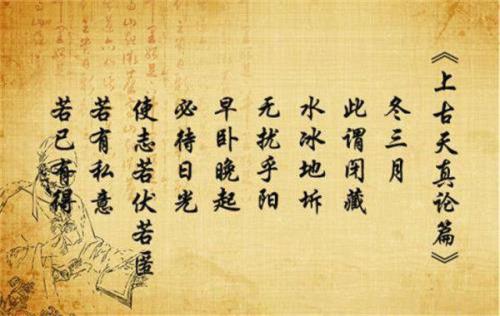 《上古天真论篇》
冬三月
此谓闭藏
水冰地坼
无扰乎阳
早卧晚起
必待日光
使志若伏若匿
若有私意
若已有得